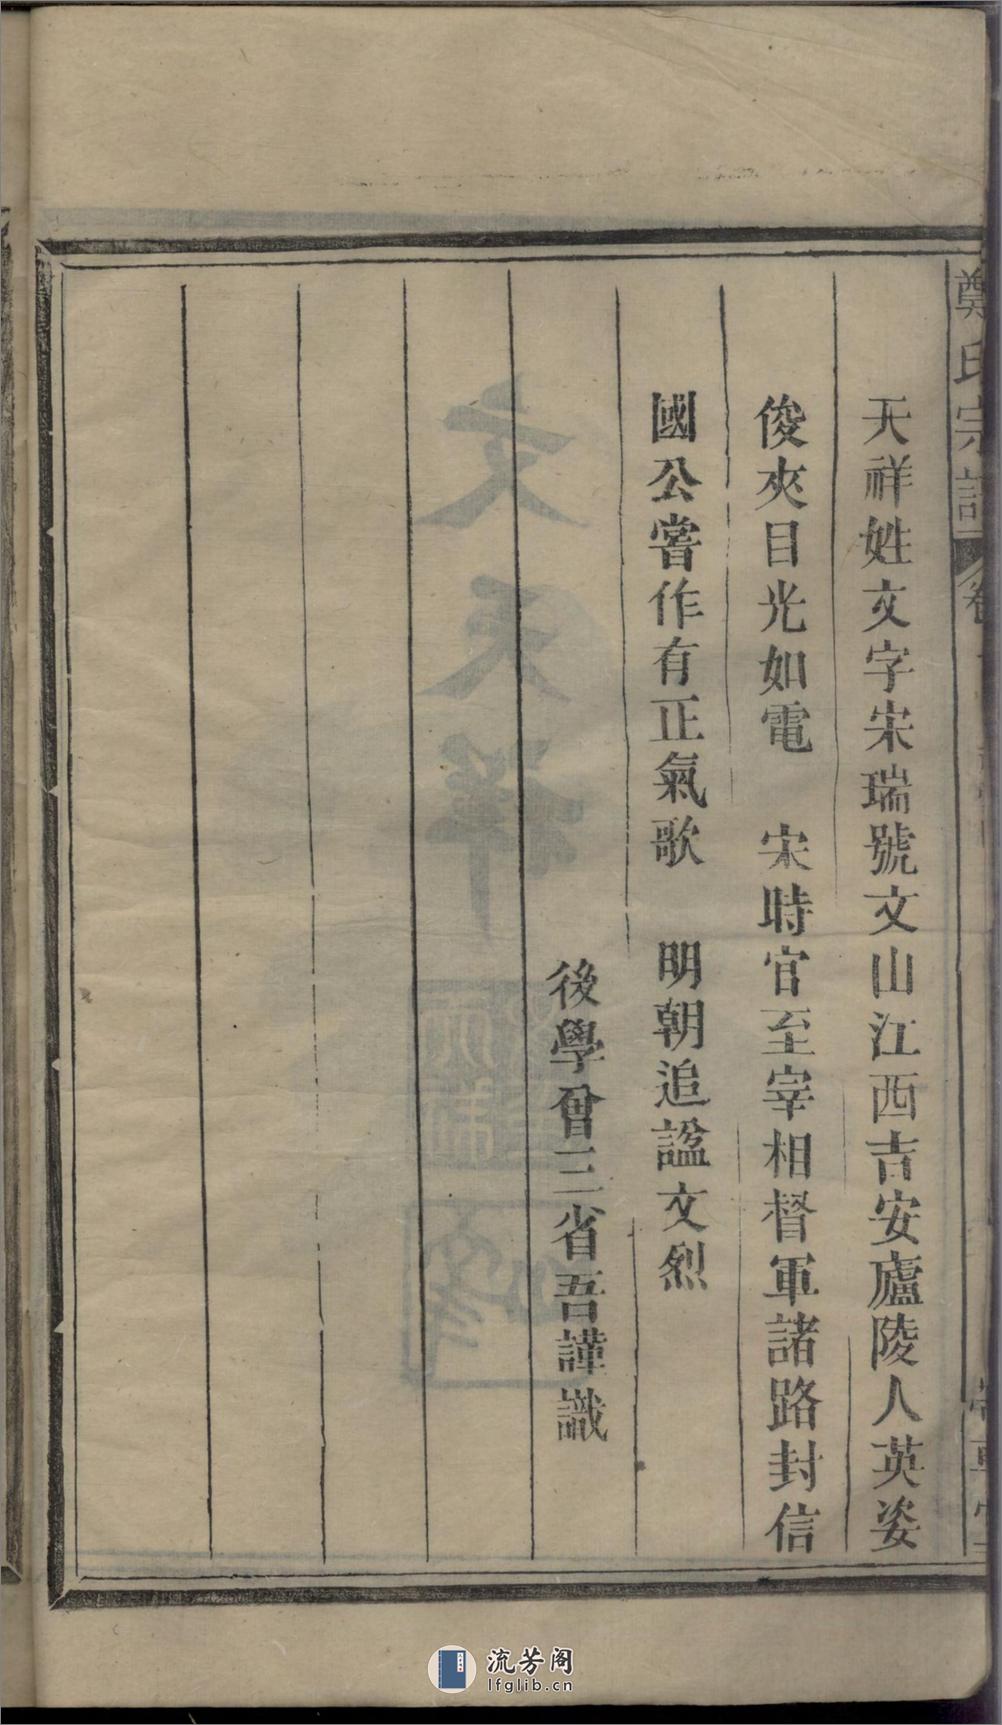 鄭氏宗譜
天祥姓文字宋瑞號文山江西吉安廬陵人英姿
俊夾目光如電　宋時官至宰相督軍諸路封信
國公嘗作有正氣歌　明朝追諡文烈
後學曾三省吾謹識
文天祥
流芳阁
lfglib.cn